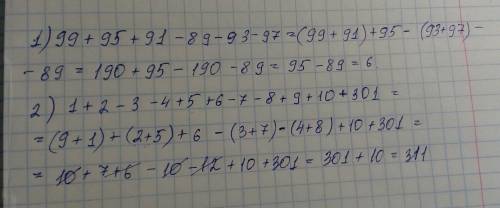 1) 99 + 95 + 91 - 89 - 93 - 97 = (99 + 91) + 95 - (93 + 97) -
- 89 = 190 + 95 - 190 - 89 = 95 - 89 = 6.
2) 1 + 2 - 3 - 4 + 5 + 6 - 7 - 8 + 9 + 10 + 301 =
= (9 + 1) + (2 + 5) + 6 - (3 + 7) - (4 + 8) + 10 + 301 =
= 10 + 7 + 6 - 10 - 12 + 10 + 301 = 301 + 10 = 311